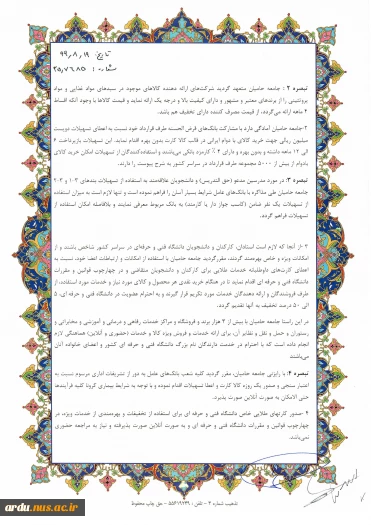 تاریخ: ۹۹,۸,۱۹
شماره: ۲۵,۷۶۸۵
تبصره ۲ : جامعه حامیان متعهد گردید شرکت‌های ارائه دهنده کالاهای موجود در سبدهای مواد غذایی و مواد
پروتئینی را از برندهای معتبر و مشهور و دارای کیفیت بالا و درجه یک ارائه نماید و قیمت کالاها با وجود آنکه اقساط
۴ ماهه ارائه می‌گردد، از قیمت مصرف کننده دارای تخفیف هم باشد.
۲-جامعه حامیان آمادگی دارد با مشارکت بانک‌های قرض الحسنه طرف قرارداد خود نسبت به اعطای تسهیلات دویست
میلیون ریالی جهت خرید کالای با دوام ایرانی در قالب کالا کارت بدون بهره اقدام نماید. این تسهیلات بازپرداخت ۶
الی ۱۲ ماهه داشته و بدون بهره و دارای ۴٪ کارمزد بانکی می‌باشند و استفاده‌کنندگان از تسهیلات امکان خرید کالای
بادوام از بیش از ۵۰۰۰ مجموعه طرف قرارداد در سراسر کشور به شرح پیوست را دارند.
تبصره ۳: در مورد مدرسین مدعو (حق التدریس) و دانشجویان علاقه‌مند به استفاده از تسهیلات بندهای ۳-۱ و ۲-۳
جامعه حامیان طی مذاکره با بانک‌های عامل شرایط بسیار آسان را فراهم نموده است و تنها لازم است به میزان استفاده
از تسهیلات یک نفر ضامن (کاسب جواز دار یا کارمند) به بانک مربوط معرفی نمایند و بلافاصله امکان استفاده از
تسهیلات فراهم گردد.
۳-از آنجا که لازم است استادان، کارکنان و دانشجویان دانشگاه فنی و حرفه‌ای در سراسر کشور شاخص باشند و از
امکانات ویژه و خاص بهره‌مند گردند، مقرر گردید جامعه حامیان با استفاده از امکانات و ارتباطات اعضا خود، نسبت به
اعطای کارت‌های داوطلبانه خدمات طلایی برای کارکنان و دانشجویان متقاضی و در چهارچوب قوانین و مقررات
دانشگاه فنی و حرفه ای اقدام نماید تا در هنگام خرید نقدی هر محصول و کالای مورد نیاز و خدمات مورد استفاده، از
طرف فروشندگان و ارائه دهندگان خدمات مورد تکریم قرار گیرند و به احترام عضویت در دانشگاه فنی و حرفه ای، ۵
الی ۵۰ درصد تخفیف به آنها تقدیم گردد.
در این راستا جامعه حامیان با بیش از ۴ هزار برند و فروشگاه و مراکز خدمات رفاهی و درمانی و آموزشی و مخابراتی و
رستوران و حمل و نقل و نظایر آن، برای ارائه خدمات و فروش ویژه کالا و خدمات (حضوری و آنلاین) هماهنگی لازم
انجام داده است که با احترام در خدمت دارندگان نام بزرگ دانشگاه فنی و حرفه ای کشور و اعضای خانواده آنان
می‌باشند.
تبصره ۴: با رایزنی جامعه حامیان، مقرر گردید، کلیه شعب بانک‌های عامل به دور از تشریفات اداری مرسوم نسبت به
اعتبار سنجی و صدور یک روزه کالا کارت و اعطا تسهیلات اقدام نموده و با توجه به شرایط بیماری کرونا کلیه فرآیندها
حتی الامکان به صورت آنلاین صورت پذیرد.
۴- صدور کارتهای طلایی خاص دانشگاه فنی و حرفه ای برای استفاده از تخفیفات و بهره‌مندی از خدمات ویژه، در
چهارچوب قوانین و مقررات دانشگاه فنی و حرفه ای و به صورت آنلاین صورت پذیرفته و نیاز به مراجعه حضوری
نمی‌باشد.
تذهیب شماره ۴ - تلفن : ۵۵۶۱۹۲۳۹ - حق چاپ محفوظ
ardu.nus.ac.ir